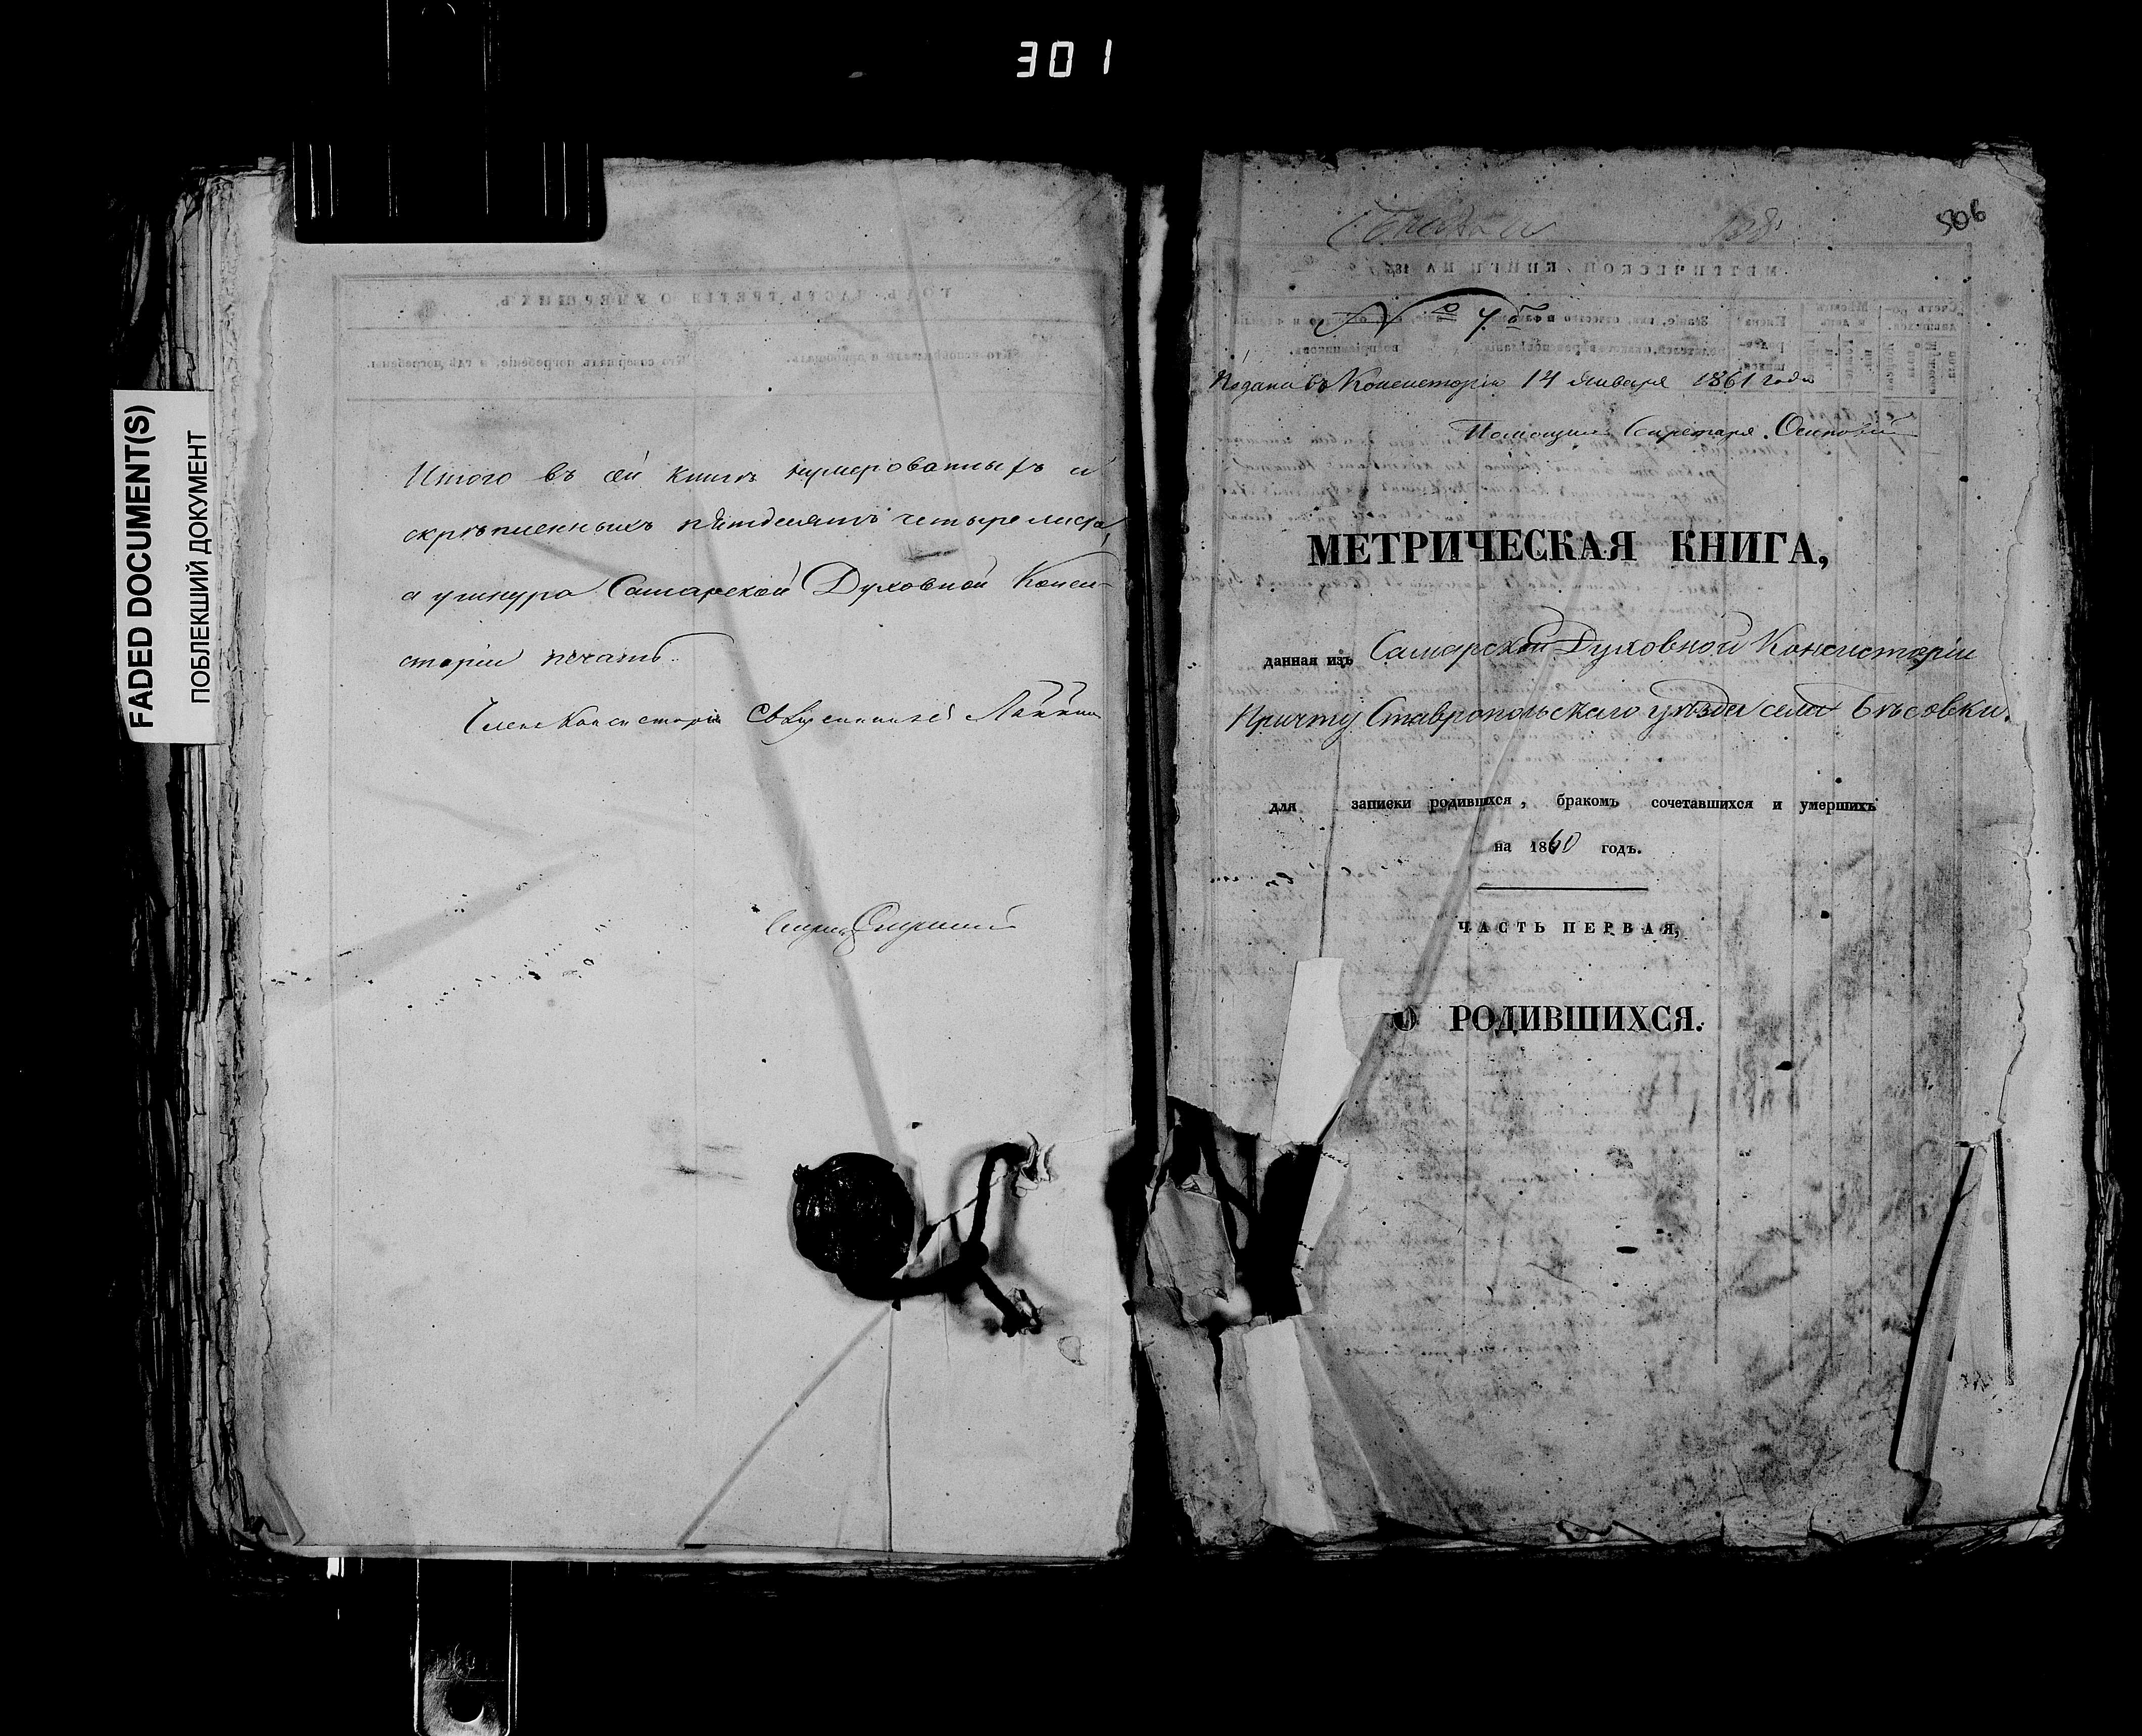 301
FADED DOCUMENT(S)
ПОБЛЕКШИЙ ДОКУМЕНТ
Итого въ сей книгѣ нумерованныхъ и
скрѣпленныхъ пятдесятъ четыре листа,
а у шнура Самарской Духовной Конси-
сторіи печать.
Членъ Консисторіи Священникъ
506
№ 7й
Подана въ Консисторію 14 Января 1861 года
Помощник Секретаря
МЕТРИЧЕСКАЯ КНИГА,
данная изъ Самарской Духовной Консисторіи
Причту Ставропольскаго уѣзда села Бѣсовки.
для записки родившихся, бракомъ сочетавшихся и умершихъ
на 1860 годъ.
ЧАСТЬ ПЕРВАЯ,
О РОДИВШИХСЯ.